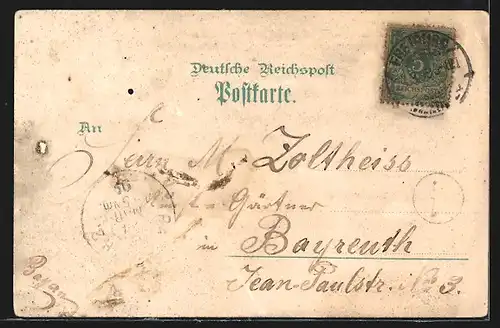 Deutsche Reichspost
Postkarte.
An
Herrn M. Zoltheiss
Gärtner
in Bayreuth
Jean-Paulstr. No 3.